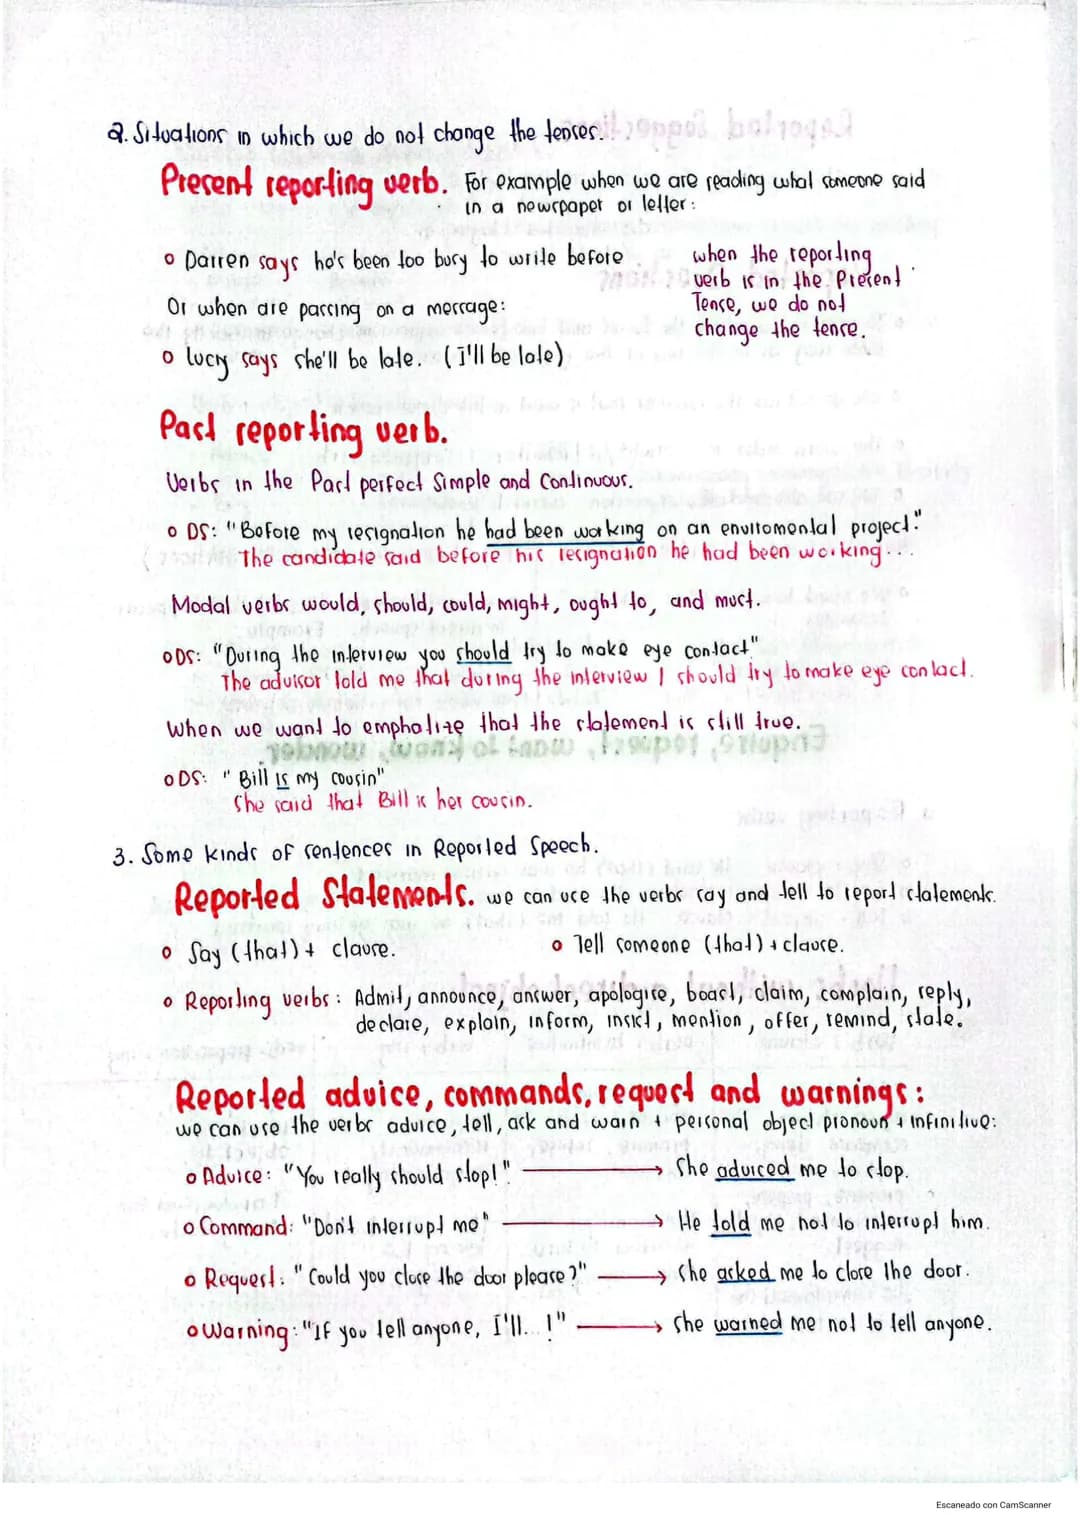 2. Situations in which we do not change the tenses.
Present reporting verb. For example when we are reading what someone said
in a newspaper or letter:
o Darren says he's been too busy to write before
when the reporting
verb is in the Present
Tense, we do not
change the tense.
Or when are passing on a message:
o Lucy says she'll be late. (I'll be late)
Past reporting verb.
Verbs in the Past perfect Simple and Continuous.
o DS: "Before my resignation he had been working on an enviromental project."
The candidate said before his resignation he had been working...
Modal verbs would, should, could, might, ought to, and must.
o DS: "During the interview you should try to make eye contact"
The advisor told me that during the interview I should try to make eye contact.
When we want to emphatize that the statement is still true.
o DS: "Bill is my cousin"
She said that Bill is her cousin.
3. Some kinds of sentences in Reported Speech.
Reported Statements. we can use the verbs say and tell to report statements.
o Say (that) + clause.
o Tell someone (that) + clause.
o Reporting verbs: Admit, announce, answer, apologise, boast, claim, complain, reply,
declare, explain, inform, insist, mention, offer, remind, state.
Reported advice, commands, request and warnings:
we can use the verbs advice, tell, ask and warn + personal object pronoun + infinitive:
o Advice: "You really should stop!" → She adviced me to stop.
o Command: "Don't interrupt me" → He told me not to interrupt him.
o Request: "Could you close the door please?" → She asked me to close the door.
o Warning: "If you tell anyone, I'll... !" → She warned me not to tell anyone.
Escaneado con CamScanner